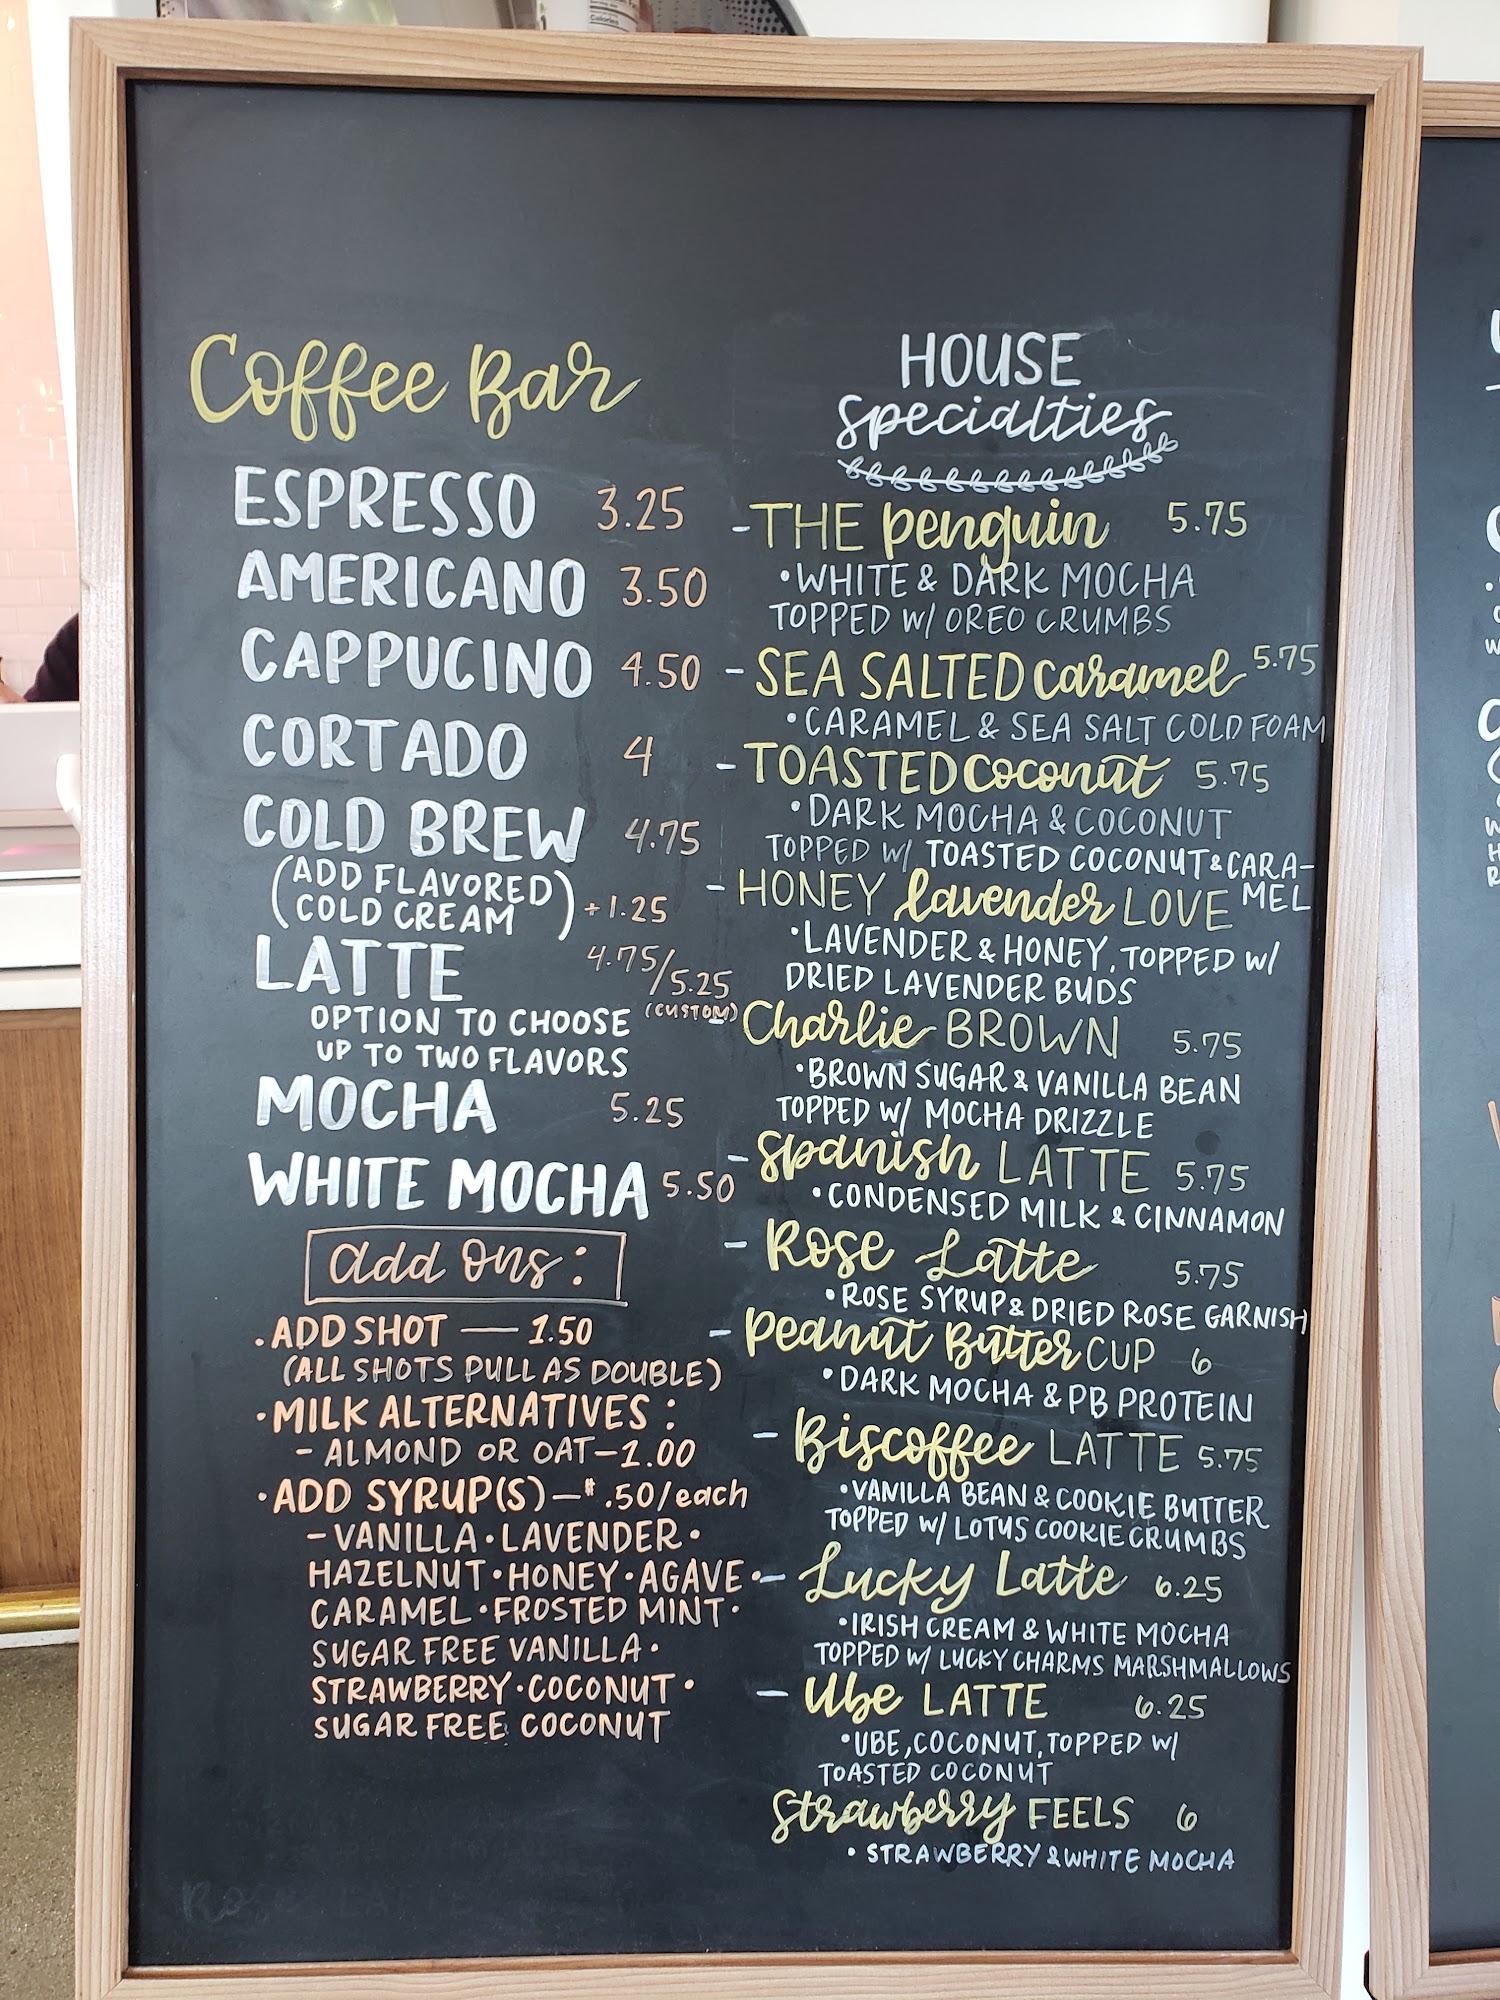 Calories
Coffee Bar
ESPRESSO 3.25
AMERICANO 3.50
CAPPUCINO 4.50
CORTADO 4
COLD BREW 4.75
(ADD FLAVORED
COLD CREAM) +1.25
LATTE 4.75/5.25
(CUSTOM)
OPTION TO CHOOSE
UP TO TWO FLAVORS
MOCHA 5.25
WHITE MOCHA 5.50
add ons:
• ADD SHOT — 1.50
(ALL SHOTS PULL AS DOUBLE)
• MILK ALTERNATIVES:
- ALMOND OR OAT - 1.00
• ADD SYRUP(S) - $.50/each
- VANILLA • LAVENDER •
HAZELNUT • HONEY • AGAVE •
CARAMEL • FROSTED MINT •
SUGAR FREE VANILLA •
STRAWBERRY • COCONUT •
SUGAR FREE COCONUT
HOUSE
Specialties
- THE penguin 5.75
• WHITE & DARK MOCHA
TOPPED W/ OREO CRUMBS
- SEA SALTED caramel 5.75
• CARAMEL & SEA SALT COLD FOAM
- TOASTED coconut 5.75
• DARK MOCHA & COCONUT
TOPPED W/ TOASTED COCONUT & CARA-
MEL
- HONEY lavender LOVE
• LAVENDER & HONEY, TOPPED W/
DRIED LAVENDER BUDS
- Charlie BROWN 5.75
• BROWN SUGAR & VANILLA BEAN
TOPPED W/ MOCHA DRIZZLE
- Spanish LATTE 5.75
• CONDENSED MILK & CINNAMON
- Rose Latte 5.75
• ROSE SYRUP & DRIED ROSE GARNISH
- Peanut Butter CUP 6
• DARK MOCHA & PB PROTEIN
- Biscoffee LATTE 5.75
• VANILLA BEAN & COOKIE BUTTER
TOPPED W/ LOTUS COOKIE CRUMBS
- Lucky Latte 6.25
• IRISH CREAM & WHITE MOCHA
TOPPED W/ LUCKY CHARMS MARSHMALLOWS
- Ube LATTE 6.25
• UBE, COCONUT, TOPPED W/
TOASTED COCONUT
Strawberry FEELS 6
• STRAWBERRY & WHITE MOCHA